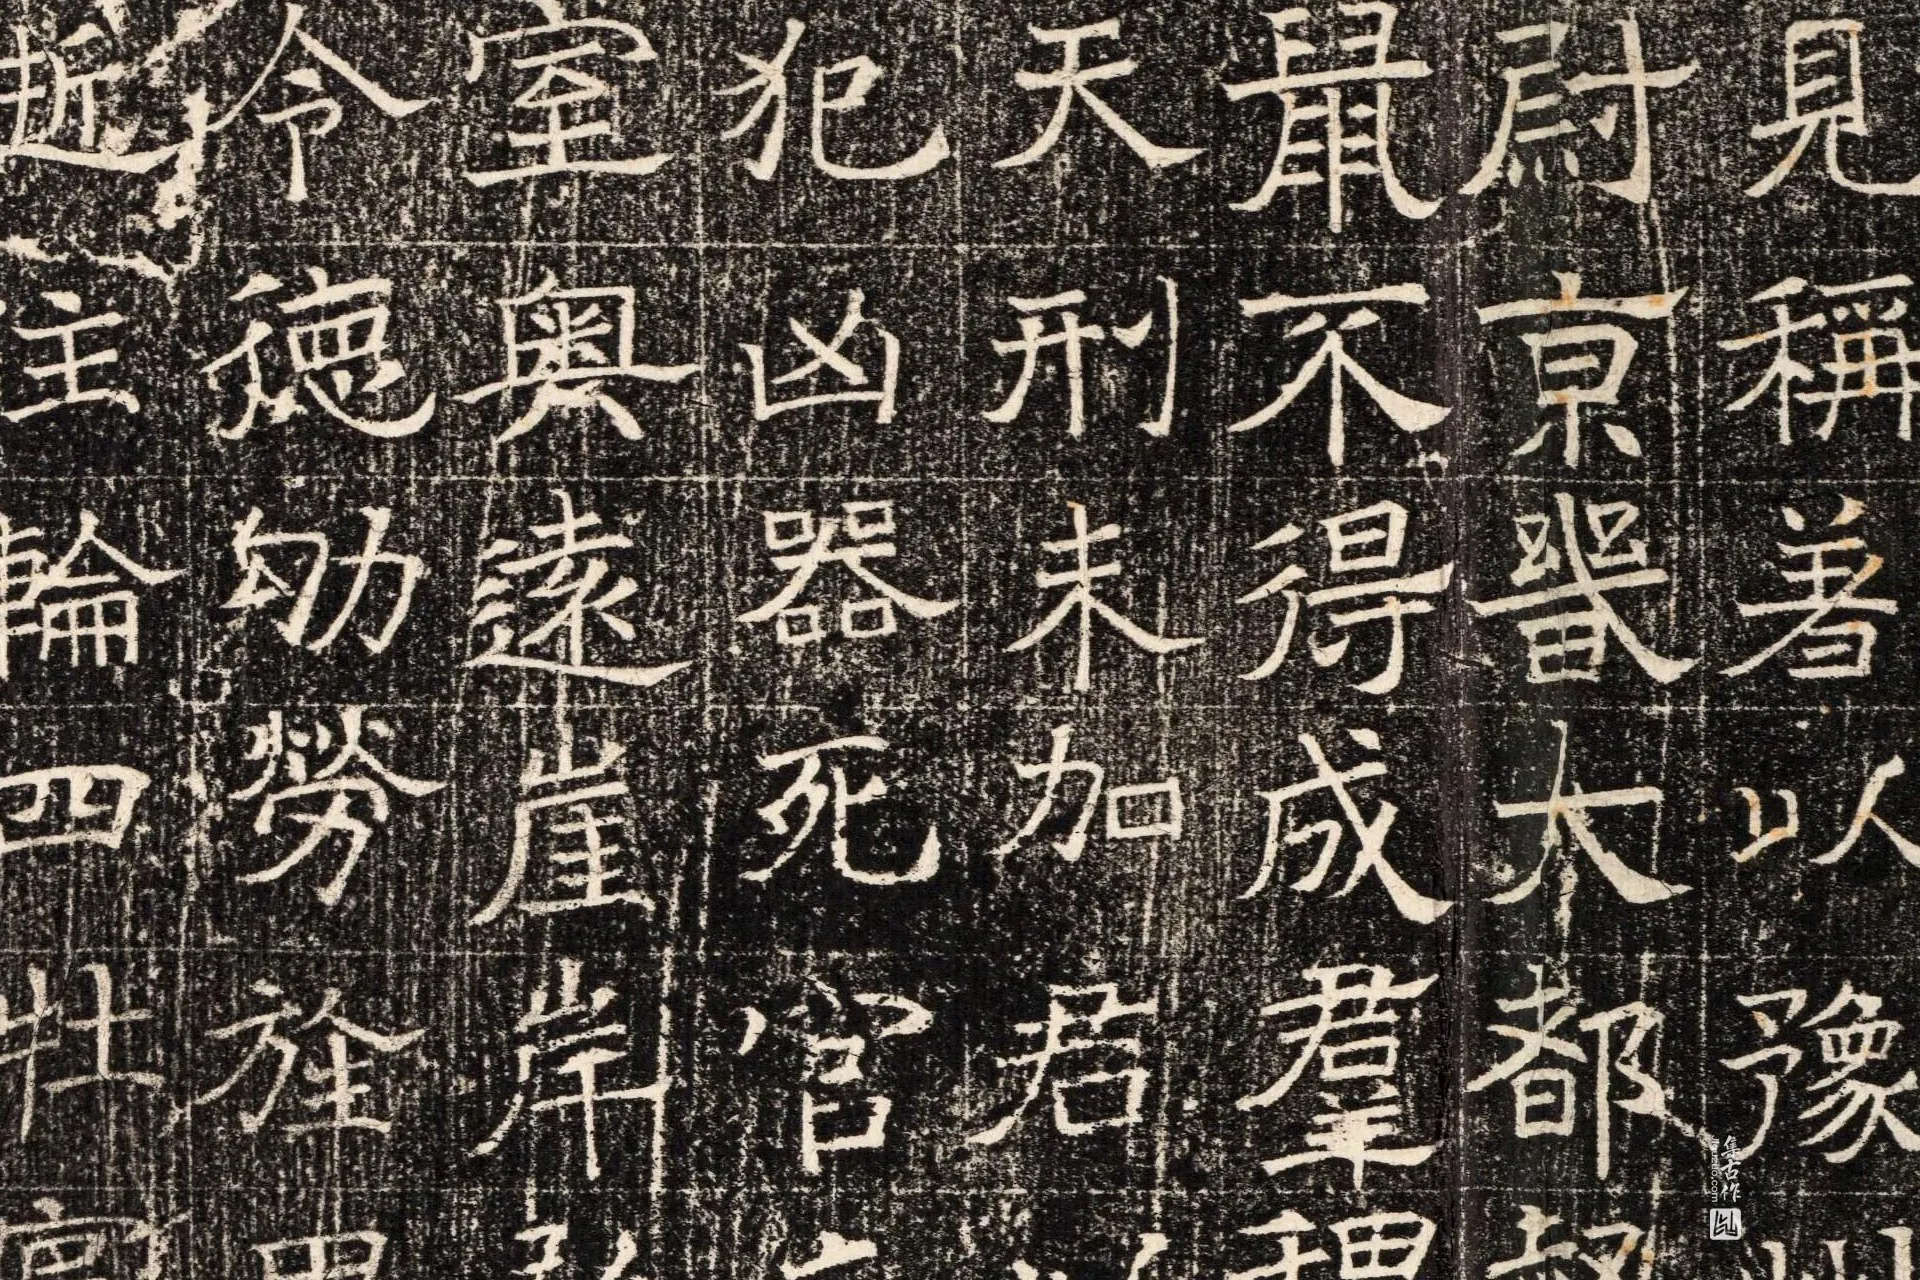 見稱著以豫州
尉京畿大都督
鼠不得成羣稷
天刑未加君
犯凶器死官
室奧遠崖岸
令德劬勞旌
輪四牡
集古作